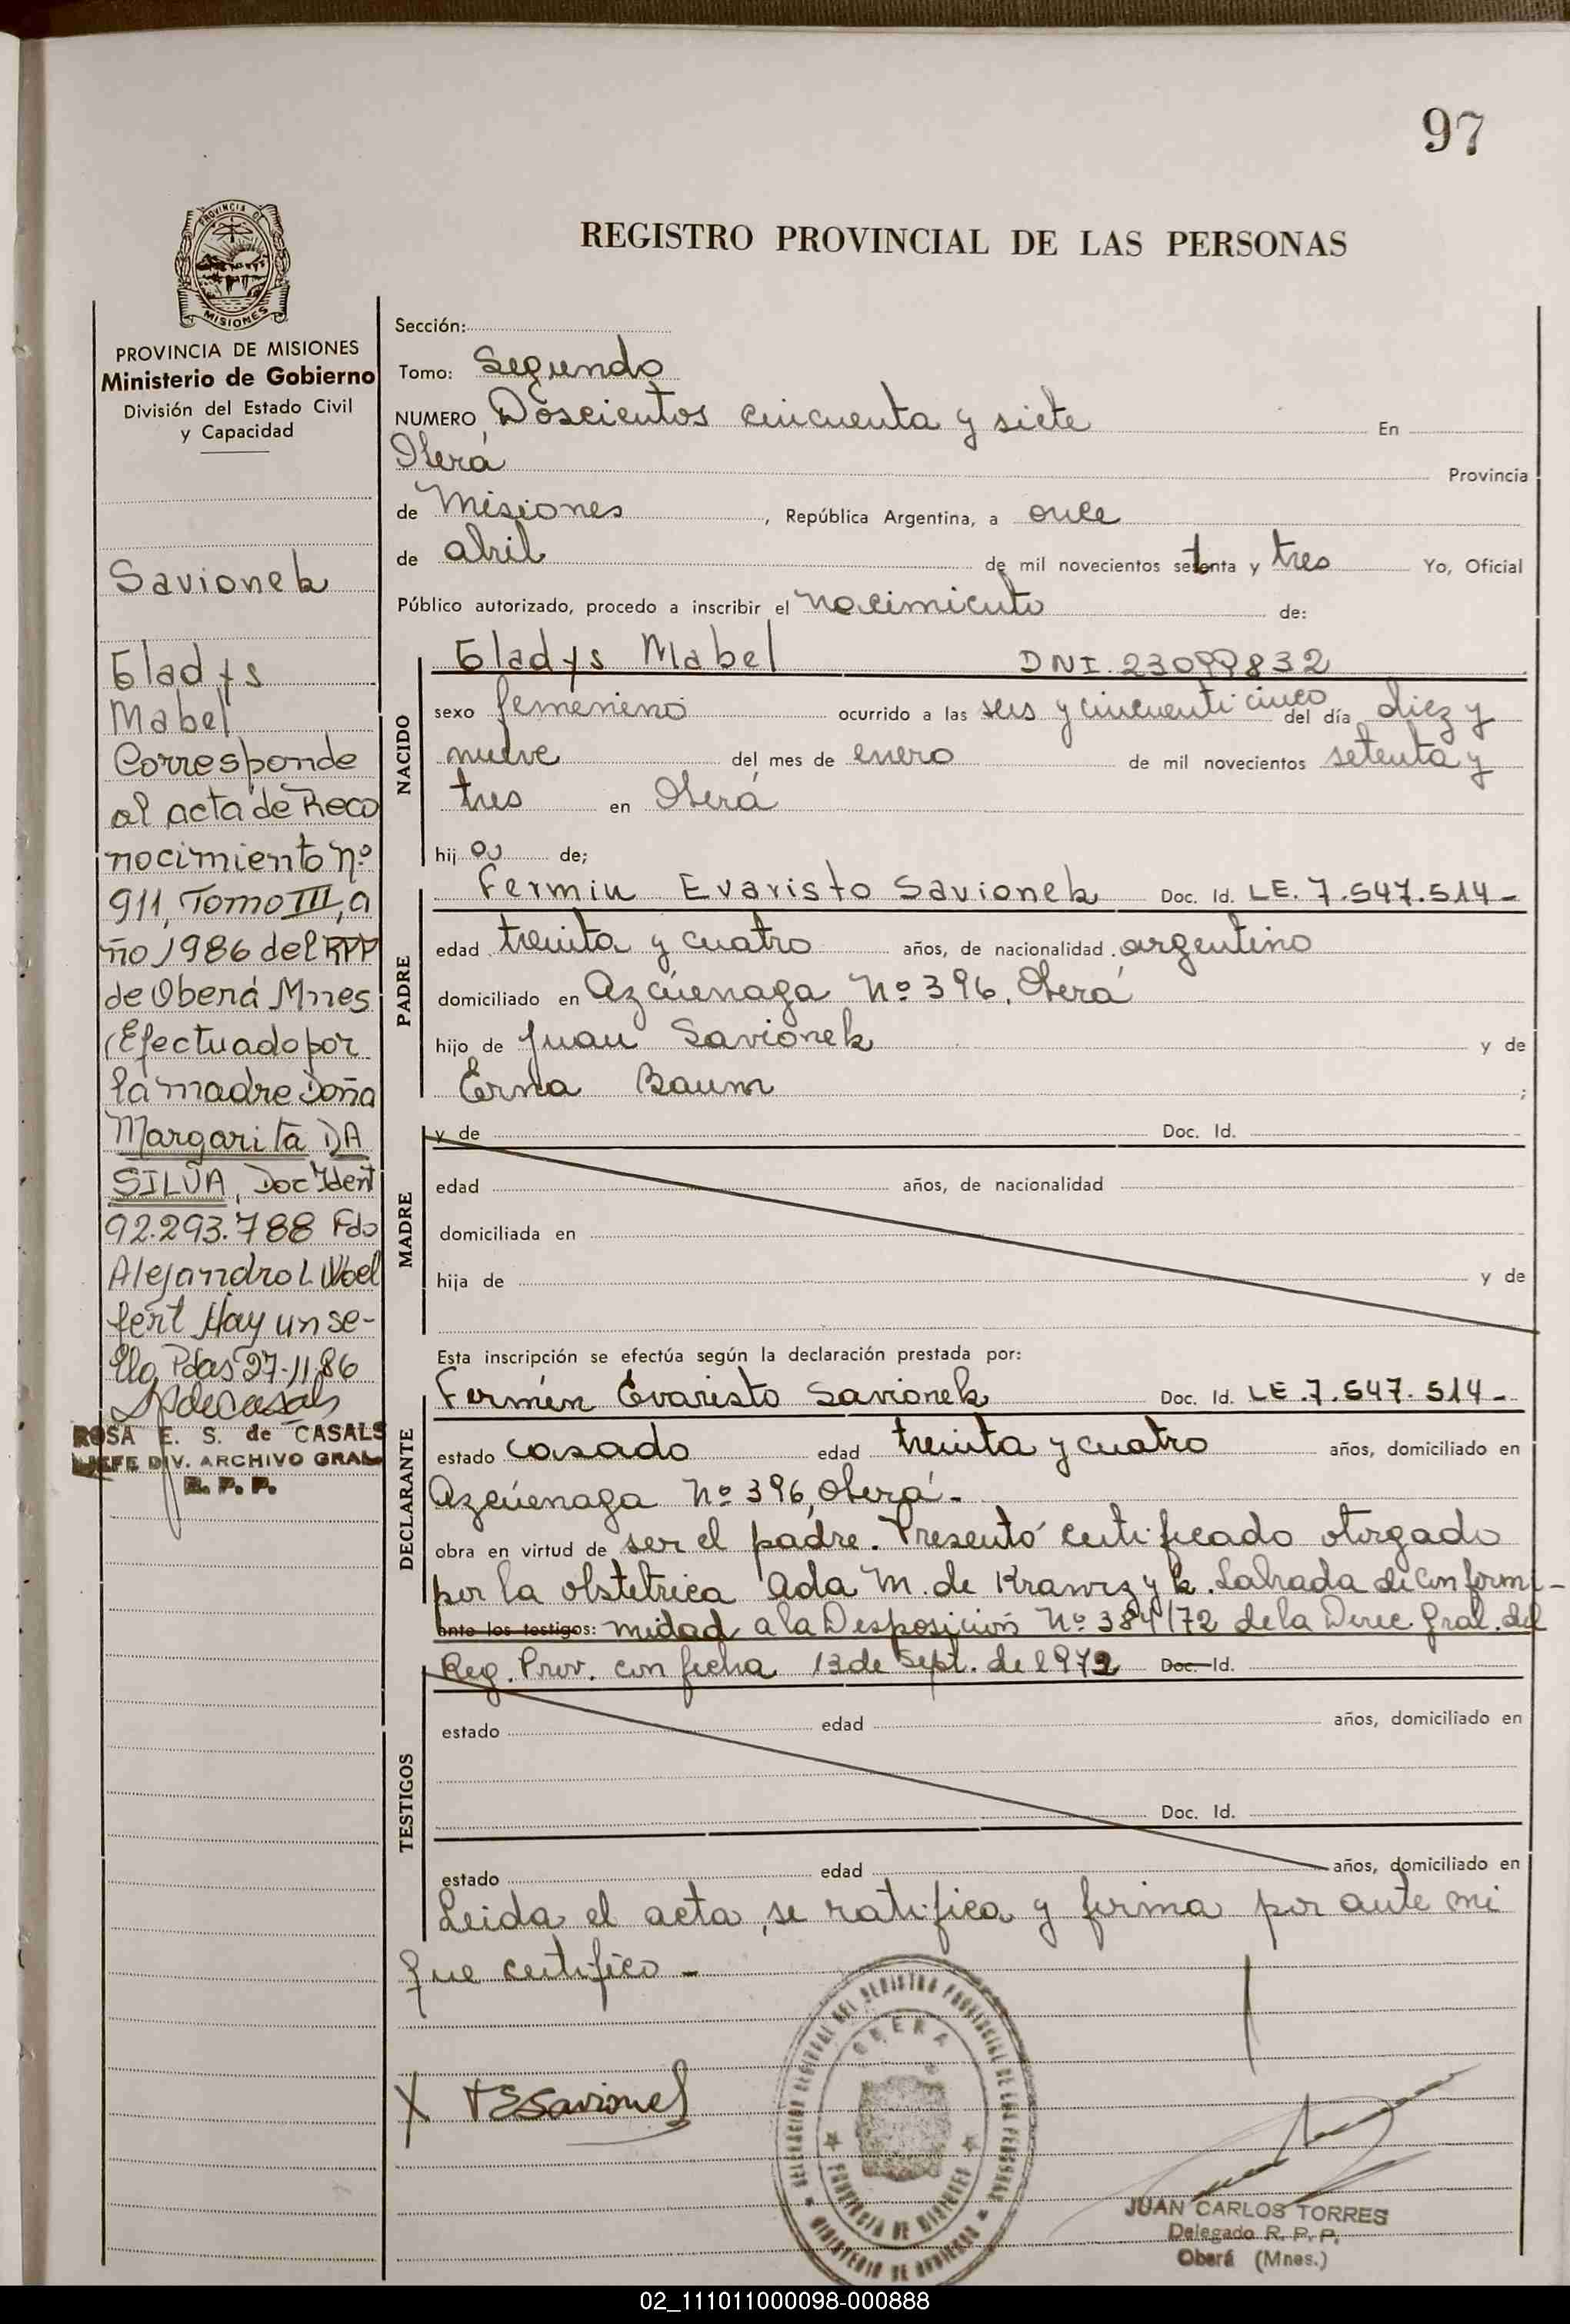 97
PROVINCIA DE
MISIONES
REGISTRO PROVINCIAL DE LAS PERSONAS
PROVINCIA DE MISIONES
Ministerio de Gobierno
División del Estado Civil
y Capacidad
Savionek
Gladys
Mabel
Corresponde
al acta de Reco
nocimiento nº
911, Tomo III, a
ño 1986 del RPP
de Oberá Mnes
(Efectuado por
la madre Doña
Margarita DA
SILVA, Doc Ident
92.293.788 Fdo
Alejandro L. Woel
fert Hay un se-
llo Pdas 27-11-86
ROSA E. S. de CASALS
JEFE DIV. ARCHIVO GRAL
R. P. P.
Sección:
Tomo: Segundo
NUMERO Doscientos cincuenta y siete En
Oberá Provincia
de Misiones, República Argentina, a once
de abril de mil novecientos setenta y tres Yo, Oficial
Público autorizado, procedo a inscribir el nacimiento de:
NACIDO
Gladys Mabel DNI. 23099832
sexo femenino ocurrido a las seis y cincuenti cinco del día diez y
nueve del mes de enero de mil novecientos setenta y
tres en Oberá
hij a de;
PADRE
Fermin Evaristo Savionek Doc. Id. LE. 7.547.514-
edad treinta y cuatro años, de nacionalidad argentino
domiciliado en Azcúenaga Nº 396, Oberá
hijo de Juan Savionek y de
Erna Baum ;
MADRE
y de Doc. Id.
edad años, de nacionalidad
domiciliada en
hija de y de
Esta inscripción se efectúa según la declaración prestada por:
DECLARANTE
Fermín Evaristo Savionek Doc. Id. LE.7.547.514-
estado casado edad treinta y cuatro años, domiciliado en
Azcúenaga Nº 396, Oberá.-
obra en virtud de ser el padre. Presentó certificado otorgado
por la obstetrica Ada M. de Krawczyk. Labrada de conformi-
ante los testigos: midad a la Desposición Nº 384/72 de la Direc. Gral. del
Reg. Prov. con fecha 13 de Sept. de 1972 Doc. Id.
TESTIGOS
estado edad años, domiciliado en
Doc. Id.
estado edad años, domiciliado en
Leida el acta, se ratifica y firma por ante mi
que certifico -
X FESavionek
DELEGACION REGIONAL DEL REGISTRO PROVINCIAL DE LAS PERSONAS
OBERA
PROVINCIA DE MISIONES
MINISTERIO DE GOBIERNO
JUAN CARLOS TORRES
Delegado R. P. P.
Oberá (Mnes.)
02_111011000098-000888